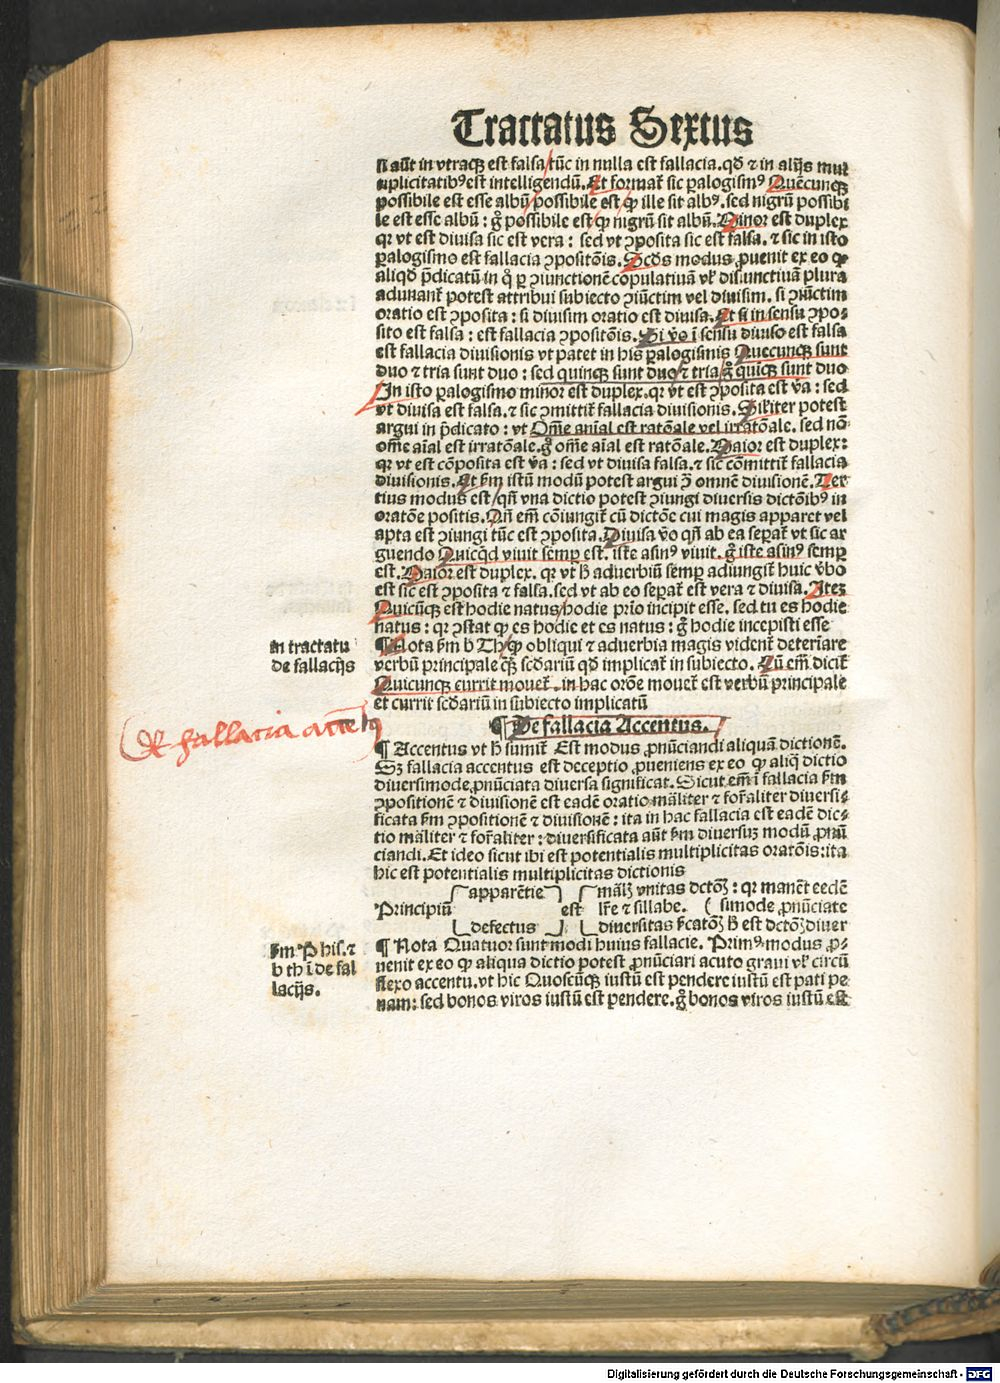 Tractatus Sextus
si aūt in vtraqꝫ est falsa/tūc in nulla est fallacia. qd̄ ⁊ in alijs mul
tiplicitatibꝰ est intelligendū. Et format̄ sic ꝑalogismꝰ Quēcunqꝫ
possibile est esse albū/possibile est/ꝙ ille sit albꝰ. sed nigrū possibi
le est esse albū: g̊ possibile est/ꝙ nigrū sit albū. Minor est duplex
qꝛ vt est diuisa sic est vera: sed vt ɔposita sic est falsa. ⁊ sic in isto
ꝑalogismo est fallacia ɔpositōis. Scd̄s modus ꝓuenit ex eo ꝙ
aliqd̄ p̄dicatū in q̊ ꝑ ɔiunctionē copulatiuā vl̓ disiunctiuā plura
adunant̄ potest attribui subiecto ɔiūctim vel diuisim. si ɔiūctim
oratio est ɔposita: si diuisim oratio est diuisa. Et si in sensu ɔpo-
sito est falsa: est fallacia ɔpositōis. Si v̄o ī sensu diuiso est falsa
est fallacia diuisionis vt patet in his ꝑalogismis Quecunqꝫ sunt
duo ⁊ tria sunt duo: sed quinqꝫ sunt duo/⁊ tria/g̊ quīqꝫ sunt duo
In isto ꝑalogismo minor est duplex. qꝛ vt est ɔposita est v̄a: sed
vt diuisa est falsa. ⁊ sic ɔmittit̄ fallacia diuisionis. Sil̓iter potest
argui in p̄dicato: vt Om̄e aīal est ratōale vel irratōale. sed nō
om̄e aīal est irratōale. g̊ om̄e aīal est ratōale. Maior est duplex:
qꝛ vt est cōposita est v̄a: sed vt diuisa falsa. ⁊ sic cōmittit̄ fallacia
diuisionis. Et s̄m istū modū potest argui ɔ̄ omnē diuisionē. Ter
tius modus est/qn̄ vna dictio potest ɔiungi diuersis dictōibꝰ in
oratōe positis. Qn̄ em̄ cōiungit̄ cū dictōe cui magis apparet vel
apta est ɔiungi tūc est ɔposita. Diuisa v̄o qn̄ ab ea seꝑat̄ vt sic ar
guendo Quicqd̄ viuit semꝑ est. iste asinꝰ viuit. g̊ iste asinꝰ semꝑ
est. Maior est duplex. qꝛ vt h̄ aduerbiū semꝑ adiungit̄ huic v̄bo
est sic est ɔposita ⁊ falsa. sed vt ab eo seꝑat̄ est vera ⁊ diuisa. Iteꝫ
Quicūqꝫ est hodie natus/hodie prīo incipit esse. sed tu es hodie
natus: qꝛ ɔstat ꝙ es hodie et es natus: g̊ hodie incepisti esse
in tractatu
de fallacijs
¶ Nota s̄m b Th/ꝙ obliqui ⁊ aduerbia magis vident̄ deterīare
verbū principale qꝫ̄ scd̄ariū qd̄ implicat̄ in subiecto. Cū em̄ dicit̄
Quicunqꝫ currit mouet̄. in hac orōe mouet̄ est verbū principale
et currit scd̄ariū in subiecto implicatū
De fallacia accētꝰ
¶ De fallacia Accentus.
¶ Accentus vt h̄ sumit̄ Est modus ꝓnūciandi aliquā dictionē.
Sꝫ fallacia accentus est deceptio ꝓueniens ex eo ꝙ aliq̄ dictio
diuersimode ꝓnūciata diuersa significat. Sicut em̄ ī fallacia s̄m
ɔpositionē ⁊ diuisionē est eadē oratio māliter ⁊ for̄aliter diuersi-
ficata s̄m ɔpositionē ⁊ diuisionē: ita in hac fallacia est eadē dic-
tio māliter ⁊ for̄aliter: diuersificata aūt s̄m diuersuꝫ modū ꝓnū
ciandi. Et ideo sicut ibi est potentialis multiplicitas oratōis: ita
hic est potentialis multiplicitas dictionis
apparētie
māl̓ꝫ vnitas dctōꝫ: qꝛ manēt eedē
Principiū
est
lr̄e ⁊ sillabe. ( simode ꝓnūciate
defectus
diuersitas s̄catōꝫ h̄ est dctōꝫ diuer
s̄m Phis. ⁊
b th ī de fal
lacijs.
¶ Nota Quatuor sunt modi huius fallacie. Primꝰ modus ꝓ-
uenit ex eo ꝙ aliqua dictio potest ꝓnūciari acuto graui vl̓ circū
flexo accentu. vt hic Quoscūqꝫ iustū est pendere iustū est pati pe
nam: sed bonos viros iustū est pendere. g̊ bonos viros iustū est
Digitalisierung gefördert durch die Deutsche Forschungsgemeinschaft - DFG